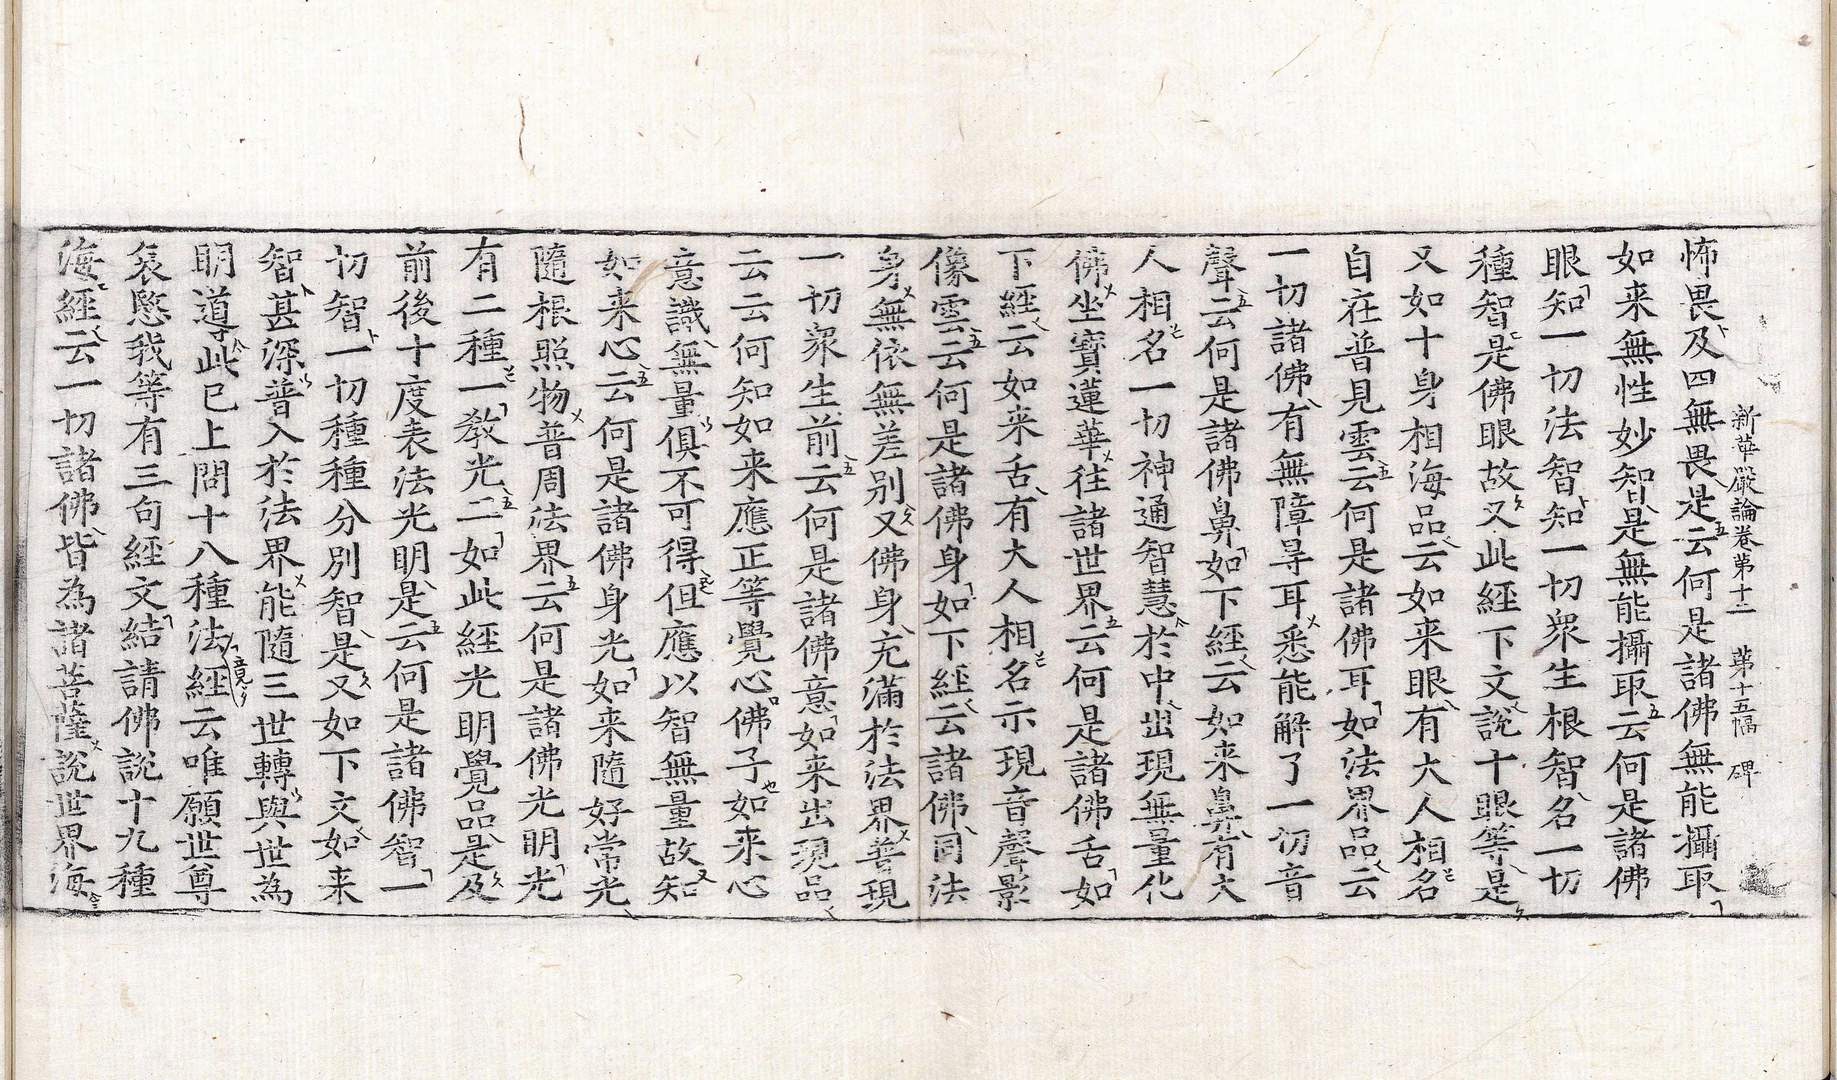 新華嚴論卷第十二 第十五幅 碑
怖畏及四無畏是云何是諸佛無能攝取
如来無性妙智是無能攝取云何是諸佛
眼知一切法智知一切衆生根智名一切
種智是佛眼故又此經下文說十眼等是
又如十身相海品云如来眼有大人相名
自在普見雲云何是諸佛耳如法界品云
一切諸佛有無障㝵耳悉能解了一切音
聲云何是諸佛鼻如下經云如来鼻有大
人相名一切神通智慧於中出現無量化
佛坐寶蓮華往諸世界云何是諸佛舌如
下經云如来舌有大人相名示現音聲影
像雲云何是諸佛身如下經云諸佛同法
身無依無差別又佛身充滿於法界普現
一切衆生前云何是諸佛意如来出現品
云云何知如来應正等覺心佛子如来心
意識無量俱不可得但應以智無量故知
如来心云何是諸佛身光如来隨好常光
隨根照物普周法界云何是諸佛光明光
有二種一教光二如此經光明覺品是及
前後十度表法光明是云何是諸佛智一
切智一切種種分別智是又如下文如来
智甚深普入於法界能隨三世轉與世為
明道此已上問十八種法經云唯願世尊
哀愍我等有三句經文結請佛說十九種
海經云一切諸佛皆為諸菩薩說世界海